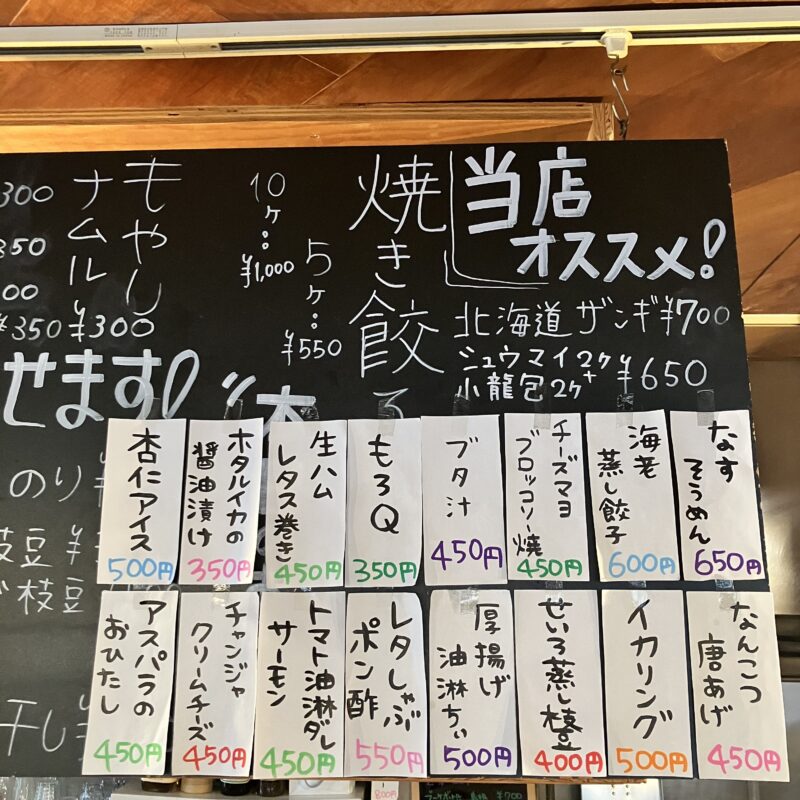 当店
オススメ!
北海道ザンギ ¥700
シュウマイ2ヶ+
小龍包2ヶ
¥650
焼き餃子
5ヶ:¥550
10ヶ:¥1,000
もやし
ナムル
¥300
¥350
せます!
のり
枝豆 ¥
枝豆
干し
なす
そうめん
650円
海老
蒸し餃子
600円
チーズマヨ
ブロッコリー焼
450円
ブタ汁
450円
もろQ
350円
生ハム
レタス巻き
450円
ホタルイカの
醤油漬け
350円
杏仁アイス
500円
なんこつ
唐あげ
450円
イカリング
500円
せいろ蒸し枝豆
400円
厚揚げ
油淋ちぃ
500円
レタしゃぶ
ポン酢
550円
トマト油淋ダレ
サーモン
450円
チャンジャ
クリームチーズ
450円
アスパラの
おひたし
450円